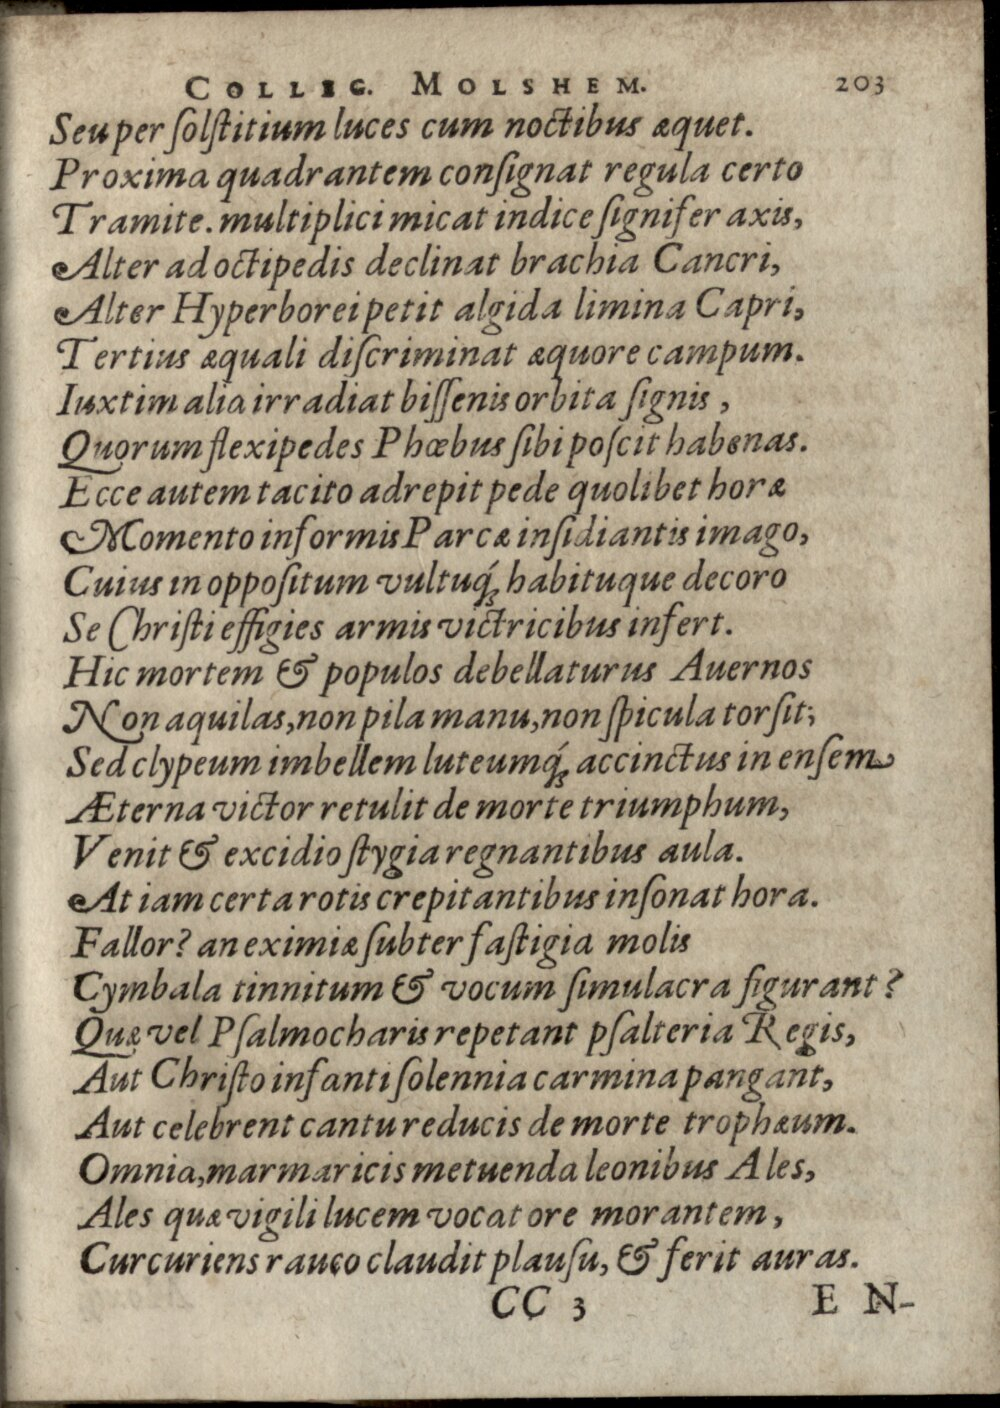 COLLEG. MOLSHEM. 203
Seu per ſolſtitium luces cum noctibus æquet.
Proxima quadrantem conſignat regula certo
Tramite. multiplici micat indice ſignifer axis,
Alter ad octipedis declinat brachia Cancri,
Alter Hyperborei petit algida limina Capri,
Tertius æquali diſcriminat æquore campum.
Iuxtim alia irradiat biſſenis orbita ſignis,
Quorum flexipedes Phœbus ſibi poſcit habenas.
Ecce autem tacito adrepit pede quolibet horæ
Momento informis Parcæ inſidiantis imago,
Cuius in oppoſitum vultuq́; habituque decoro
Se Chriſti effigies armis victricibus infert.
Hic mortem & populos debellaturus Auernos
Non aquilas, non pila manu, non ſpicula torſit;
Sed clypeum imbellem luteumq́; accinctus in enſem
Æterna victor retulit de morte triumphum,
Venit & excidio ſtygia regnantibus aula.
At iam certa rotis crepitantibus inſonat hora.
Fallor? an eximiæ ſubter faſtigia molis
Cymbala tinnitum & vocum ſimulacra figurant?
Quæ vel Pſalmocharis repetant pſalteria Regis,
Aut Chriſto infanti ſolennia carmina pangant,
Aut celebrent cantu reducis de morte trophæum.
Omnia, marmaricis metuenda leonibus Ales,
Ales quæ vigili lucem vocat ore morantem,
Curcuriens rauco claudit plauſu, & ferit auras.
CC 3 EN-